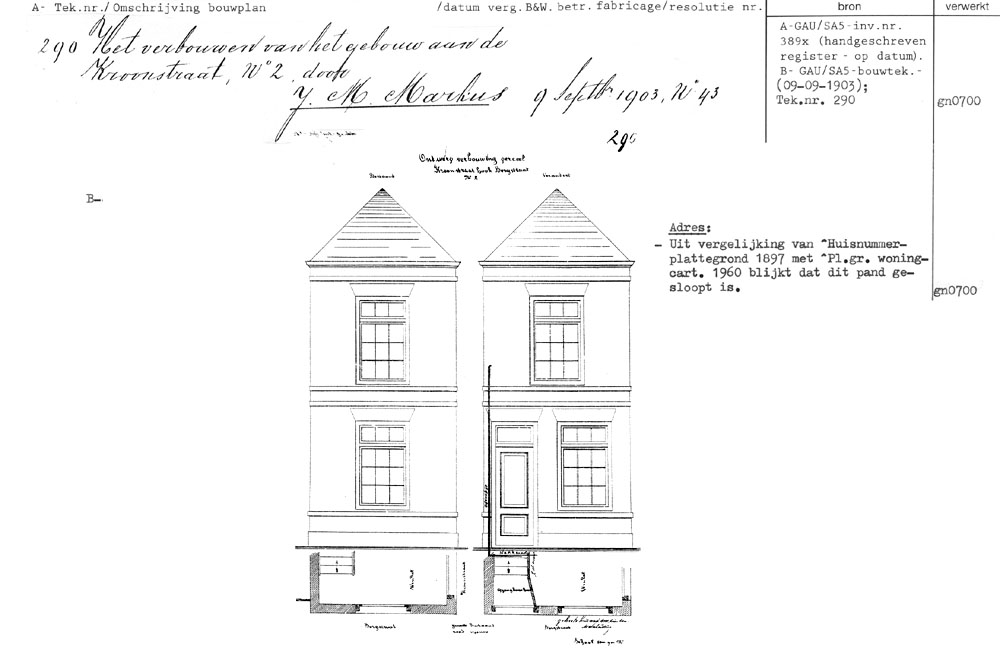 A- Tek.nr./ Omschrijving bouwplan /datum verg.B&W. betr. fabricage/resolutie nr.
bron
verwerkt
290 Het verbouwen van het gebouw aan de
Kroonstraat, No 2, door
J. M. Markus 9 Septbr 1903, No 43
A-GAU/SA5-inv.nr.
389x (handgeschreven
register - op datum).
B- GAU/SA5-bouwtek.-
(09-09-1903);
Tek.nr. 290
gn0700
290
Ontwerp verbouwing perceel
Kroonstraat hoek Bergstraat
No 2
B-
Adres:
- Uit vergelijking van ^Huisnummer-
plattegrond 1897 met ^Pl.gr. woning-
cart. 1960 blijkt dat dit pand ge-
sloopt is.
gn0700
Winkel
Winkel